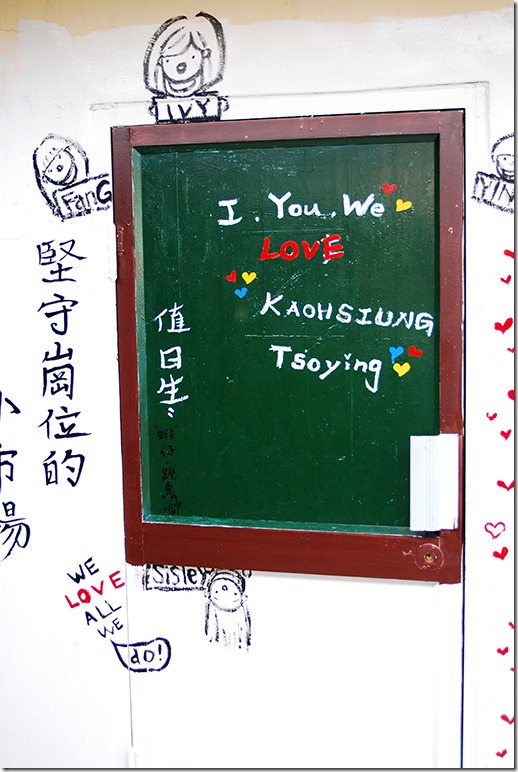 IVY
FanG
YIN
I. You. We
LOVE
KAOHSIUNG
Tsoying
值日生:
堅守崗位的
小市場
Sisley
WE
LOVE
ALL
WE
do!